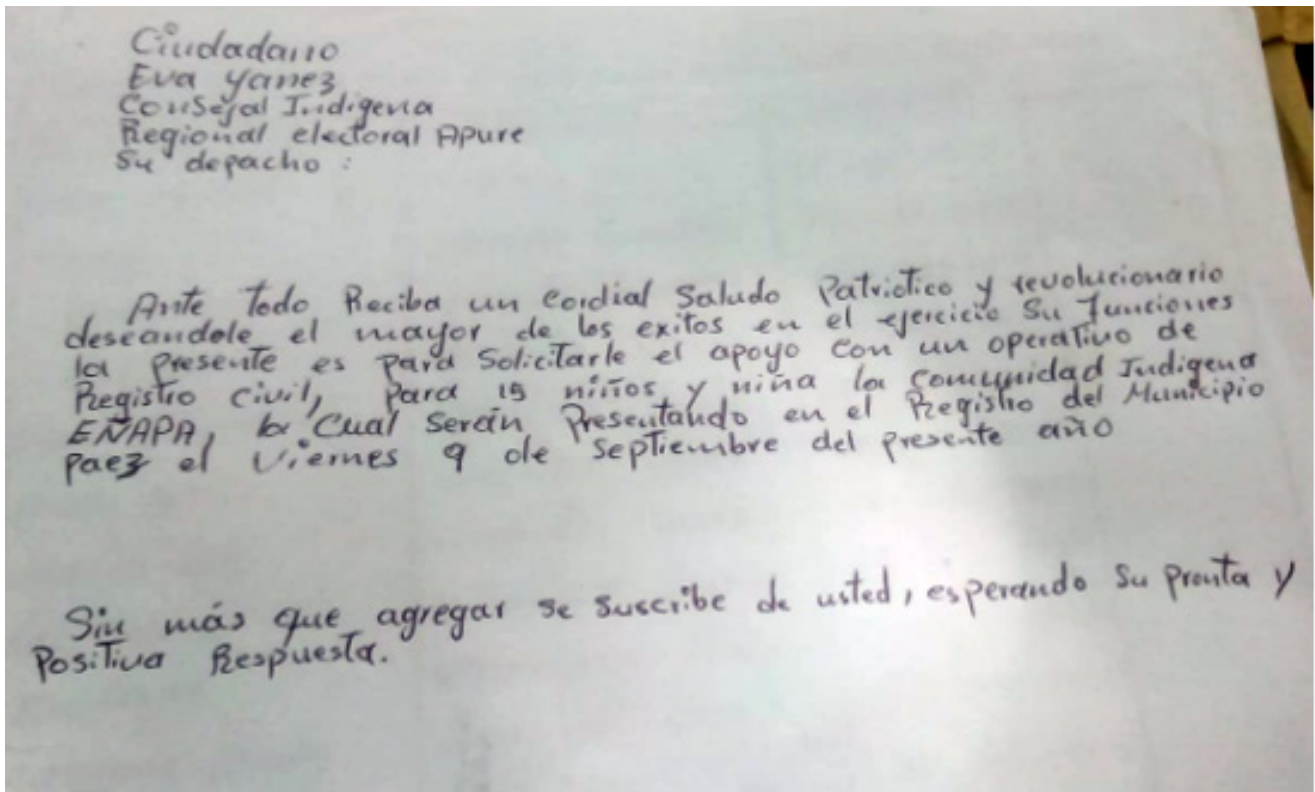 Ciudadano
Eva Yanez
Consejal Indigena
Regional electoral Apure
Su depacho :
Ante todo Reciba un cordial Saludo Patriotico y revolucionario
deseandole el mayor de los exitos en el ejercicio Su funciones
la presente es para Solicitarle el apoyo con un operativo de
Registro civil, para 15 niños y niña la comunidad Indigena
EÑAPA, lo Cual serán Presentando en el Registro del Municipio
paez el Viernes 9 de Septiembre del presente año
Sin más que agregar se suscribe de usted, esperando Su pronta y
Positiva Respuesta.